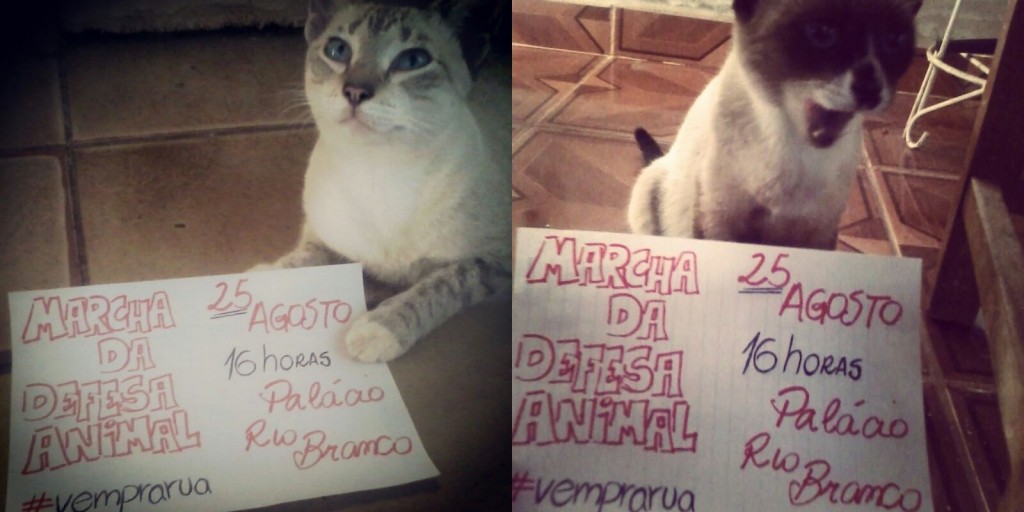 MARCHA
DA
DEFESA
ANIMAL
#vemprarua
25
AGOSTO
16 horas
Palácio
Rio
Branco
MARCHA
DA
DEFESA
ANIMAL
#vemprarua
25
AGOSTO
16 horas
Palácio
Rio
Branco